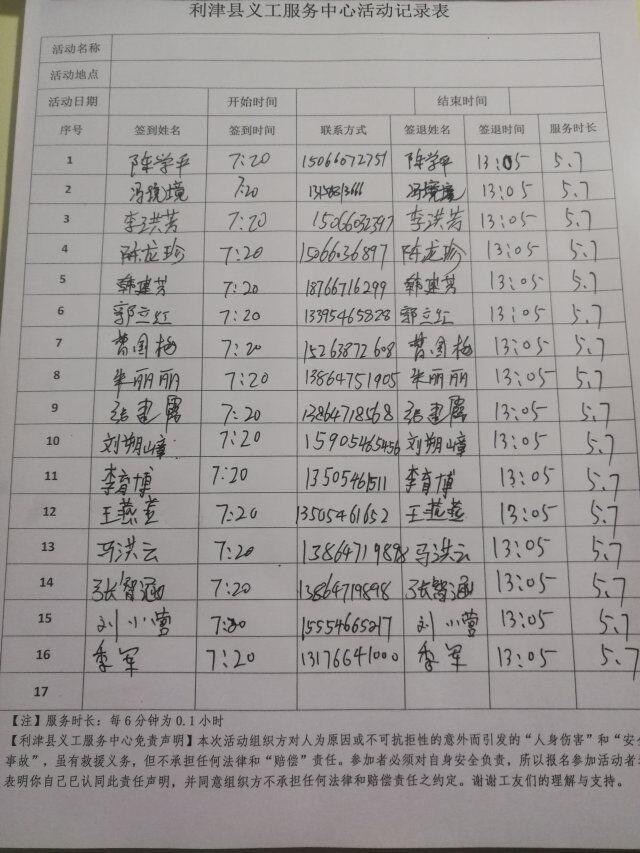 利津县义工服务中心活动记录表
活动名称
活动地点
活动日期 开始时间 结束时间
序号 签到姓名 签到时间 联系方式 签退姓名 签退时间 服务时长
1 陈学平 7:20 15066072751 陈学平 13:05 5.7
2 冯境境 7:20 冯境境 13:05 5.7
3 李洪芳 7:20 15066032397 李洪芳 13:05 5.7
4 陈龙珍 7:20 15066036897 陈龙珍 13:05 5.7
5 韩建芳 7:20 18766716299 韩建芳 13:05 5.7
6 郭立红 7:20 13395465828 郭立红 13:05 5.7
7 曹国梅 7:20 15263872608 曹国梅 13:05 5.7
8 朱丽丽 7:20 13864751905 朱丽丽 13:05 5.7
9 7:20 13864718568 13:05 5.7
10 刘朔嶂 7:20 15905465456 刘朔嶂 13:05 5.7
11 李育博 7:20 13505461511 李育博 13:05 5.7
12 王燕燕 7:20 13505461652 王燕燕 13:05 5.7
13 马洪云 7:20 13864719898 马洪云 13:05 5.7
14 张智涵 7:20 13864719898 张智涵 13:05 5.7
15 刘小营 7:20 15554665217 刘小营 13:05 5.7
16 季军 7:20 13176641000 季军 13:05 5.7
17
【注】服务时长：每6分钟为0.1小时
【利津县义工服务中心免责声明】本次活动组织方对人为原因或不可抗拒性的意外而引发的“人身伤害”和“安全
事故”，虽有救援义务，但不承担任何法律和“赔偿”责任。参加者必须对自身安全负责，所以报名参加活动者
表明你自己已认同此责任声明，并同意组织方不承担任何法律和赔偿责任之约定。谢谢工友们的理解与支持。